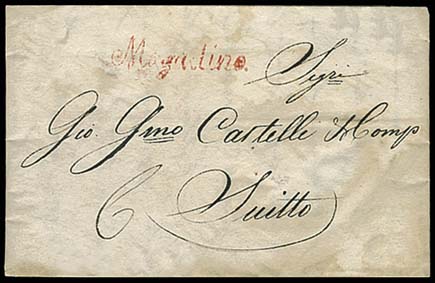 Magadino.
Sigri
Gio. Gmo Castelle & Comp
Suitto